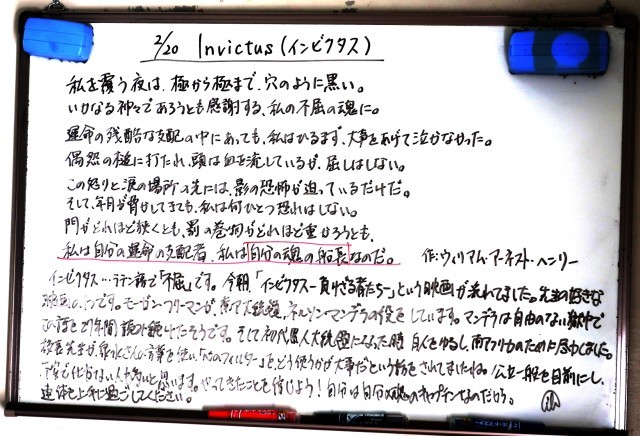 2/20 Invictus (インビクタス)
私を覆う夜は、極から極まで、穴のように黒い。
いかなる神々であろうとも感謝する、私の不屈の魂に。
運命の残酷な支配の中にあっても、私はひるまず、大声をあげて泣かなかった。
偶然の槌に打たれ、頭は血を流しているが、屈しはしない。
この怒りと涙の場所の先には、影の恐怖が迫っているだけだ。
そして、年月が脅かしてきても、私は何ひとつ恐れはしない。
門がどれほど狭くとも、罰の巻物がどれほど重かろうとも、
私は自分の運命の支配者、私は自分の魂の船長なのだ。 作:ウィリアム・アーネスト・ヘンリー
インビクタス…ラテン語で「不屈」です。今朝、「インビクタス-負けざる者たち-」という映画が流れてました。先生の好きな
映画の1つです。モーガン・フリーマンが 大統領、ネルソン・マンデラの役をしています。マンデラは自由のない獄中で
この詩を27年間 読み続けたそうです。そして初代黒人大統領になった時 白人をゆるし、南アフリカのために尽くしました。
校長先生が、 さんの言葉を使い、「心のフィルター」をどう使うかが大事だという話をされてましたね。公立一般を目前にし、
不安で仕方ない人も多いと思います。やってきたことを信じよう!自分は自分の魂のキャプテンなのだから。
週休を上手に過ごしてください。